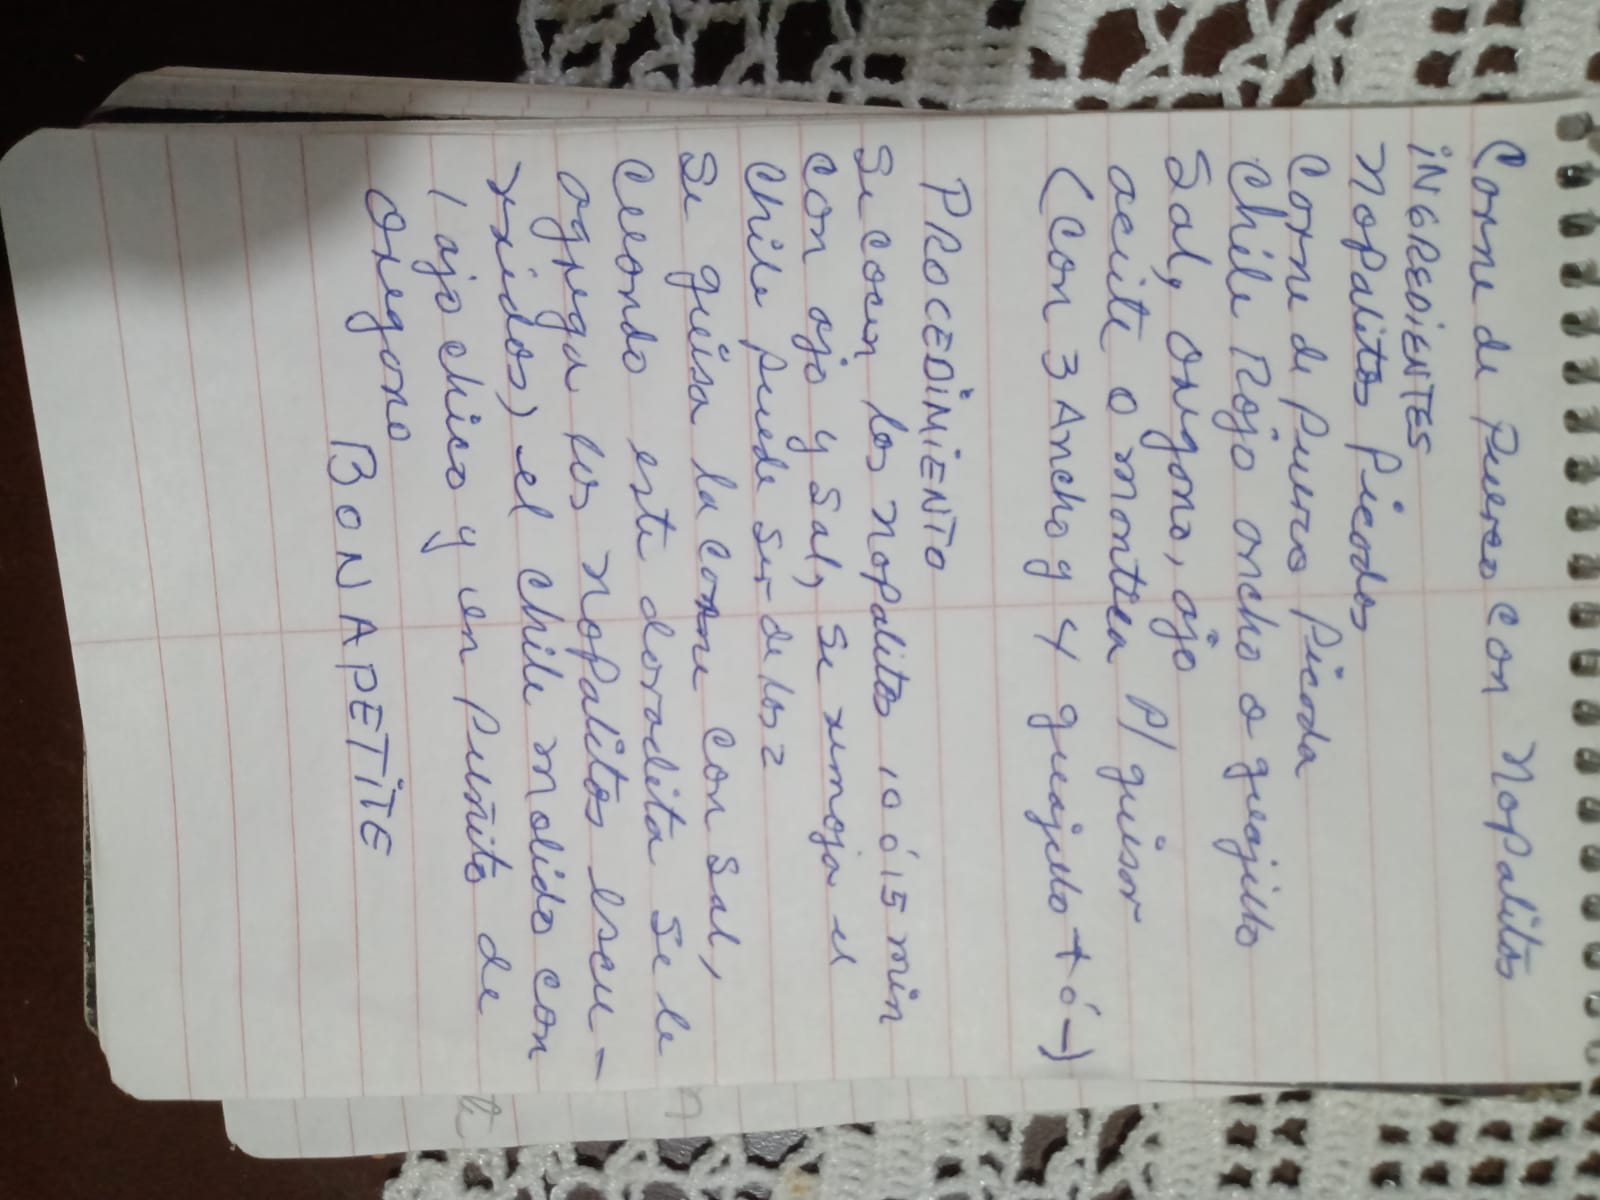 Carne de Puerco con Nopalitos
iNGREDiENTES
Nopalitos Picados
Carne de Puerco Picada
Chile Rojo ancho o guajillo
Sal, oregano, ajo
aceite o manteca P/ guisar
(Con 3 Ancho y 4 guajillo + ó -)
PROCEDiMiENTO
Se cocen los Nopalitos 10 ó 15 min
con ajo y Sal, Se remoja el
Chile puede Ser de los 2
Se guisa la carne con Sal,
Cuando este doradita Se le
agrega los nopalitos escu-
rridos, el chile molido con
1 ajo chico y un Puñito de
Oregano
BON APETiTE